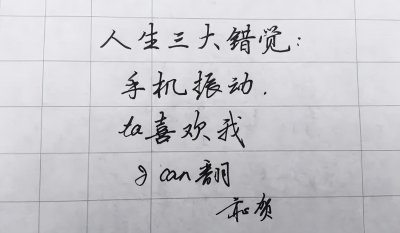 人生三大错觉：
手机振动.
ta喜欢我
g can翻